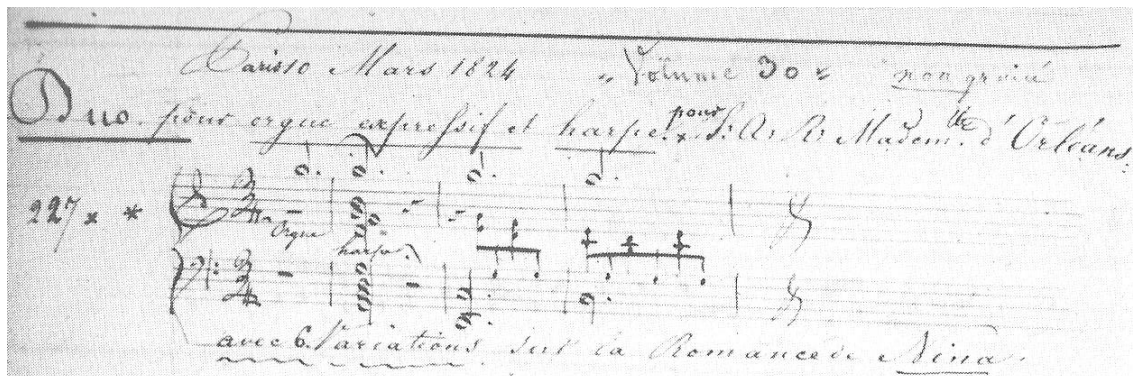 Paris 10 Mars 1824 " Volume 30 " non gravé
Duo pour orgue expressif et harpe. pour S. A. R. Madem.lle d'Orléans.
227 × *
Orgue
harpe.
avec 6 Variations sur la Romance de Nina.